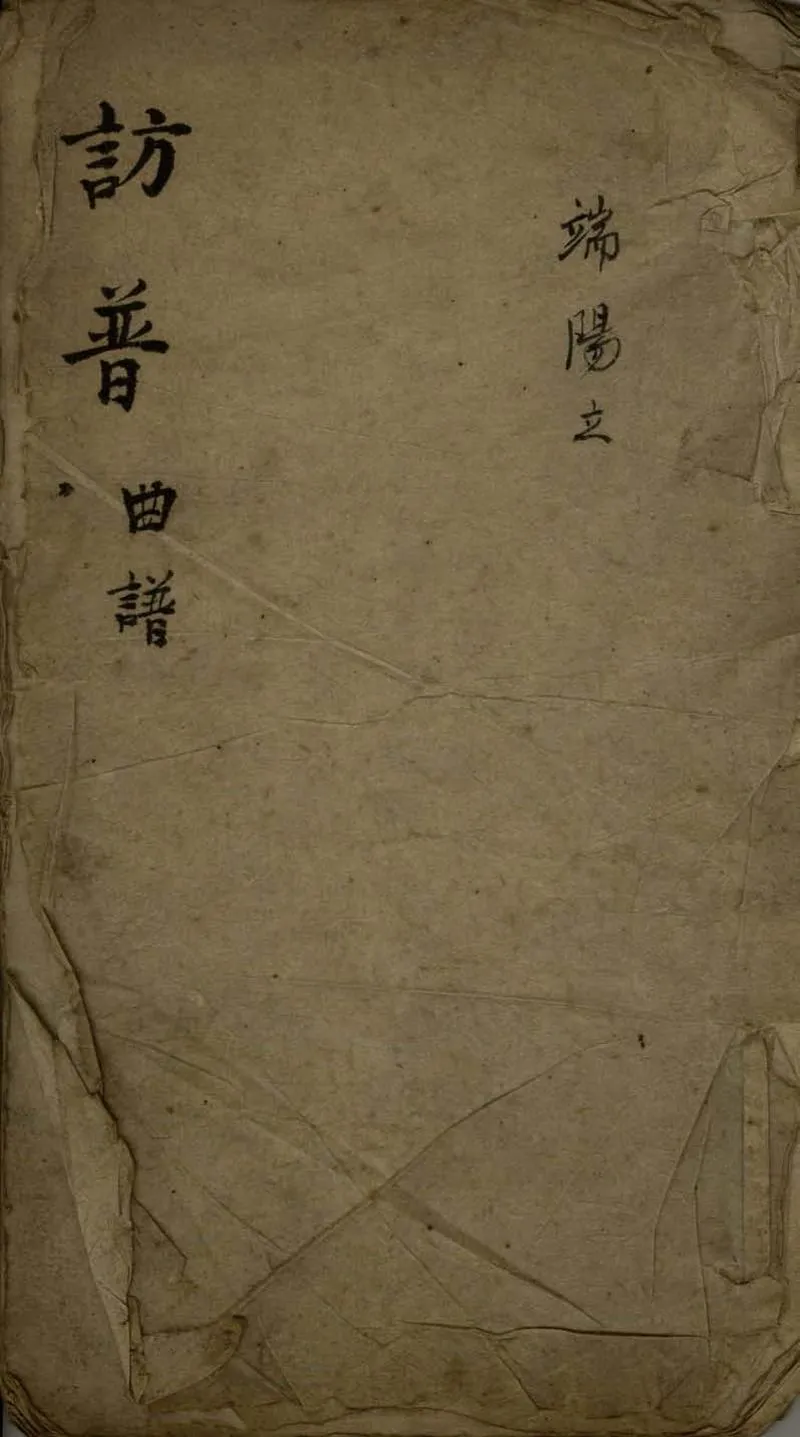 端陽立
訪普曲譜